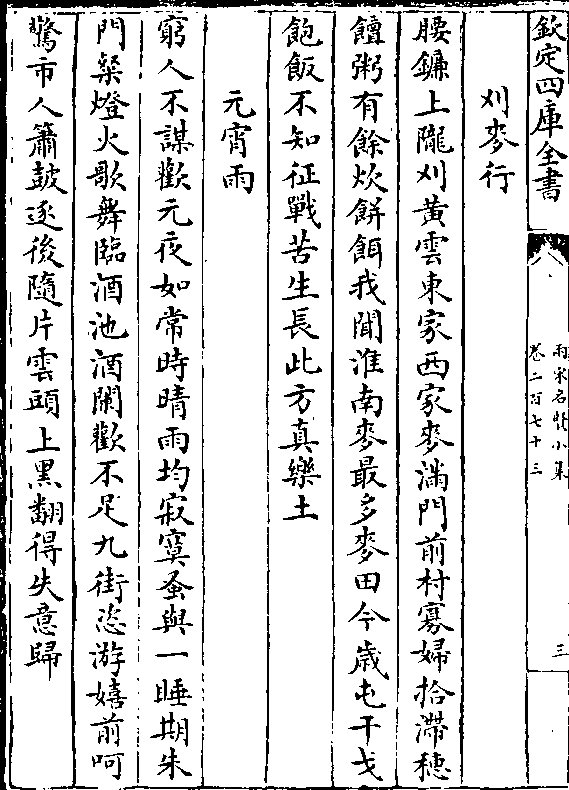 欽定四庫全書
兩宋名賢小集
卷二百七十三
三
刈麥行
腰鐮上隴刈黃雲東家西家麥滿門前村寡婦拾滯穗
饘粥有餘炊餅餌我聞淮南麥最多麥田今歲屯干戈
飽飯不知征戰苦生長此方真樂土
元宵雨
窮人不謀歡元夜如常時晴雨均寂寞蚤與一睡期朱
門粲燈火歌舞臨酒池酒闌歡不足九街恣游嬉前呵
驚市人簫鼓逐後隨片雲頭上黑翻得失意歸